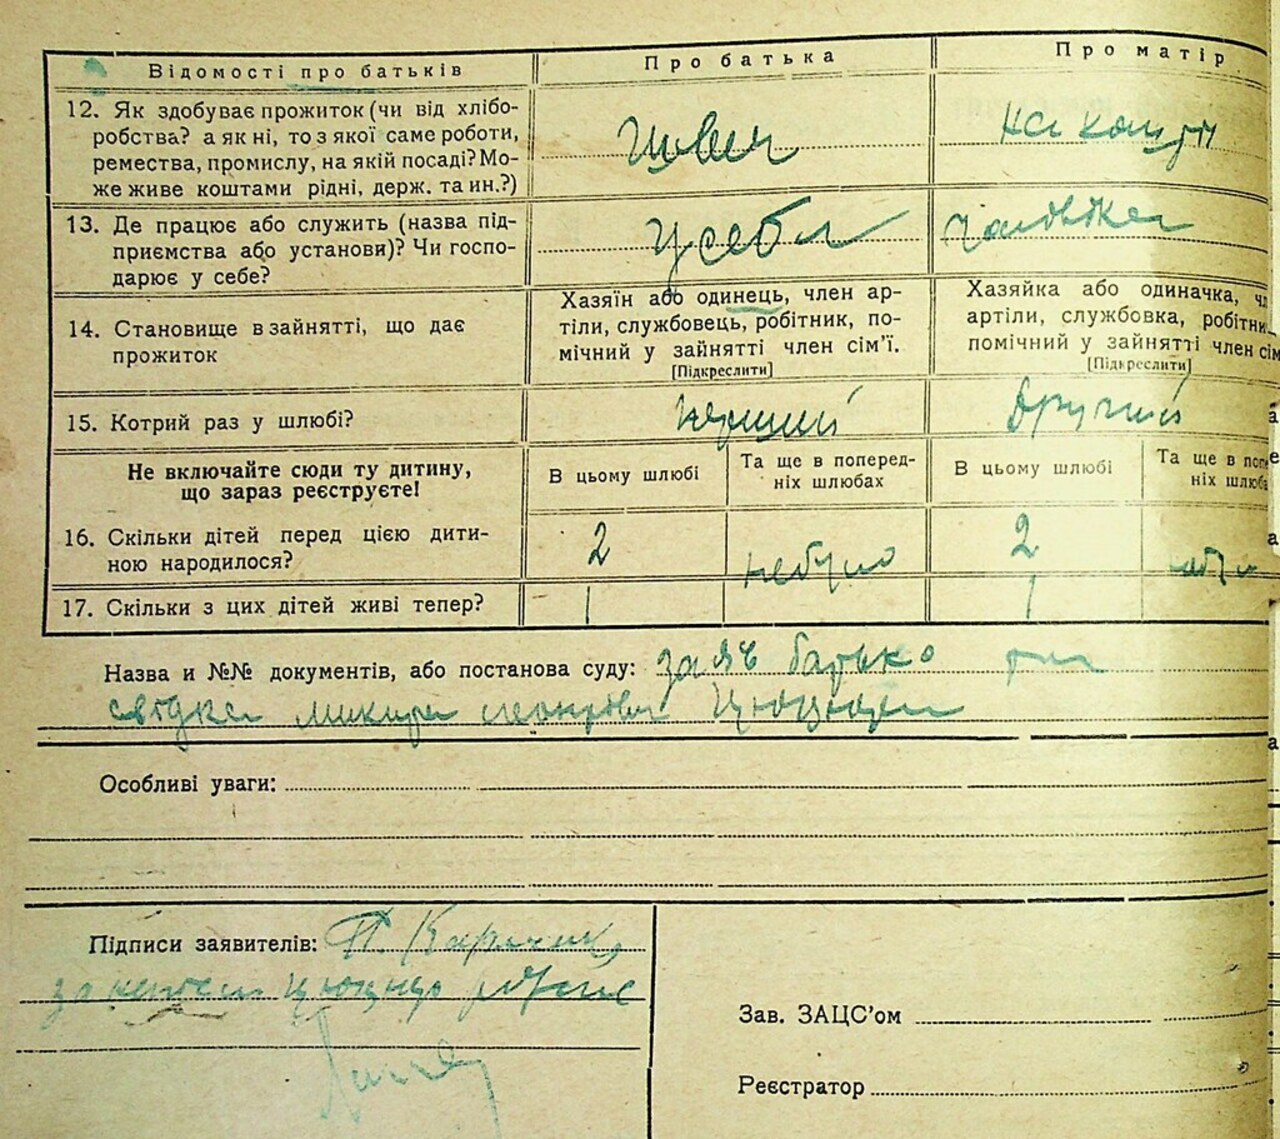 Відомості про батьків
Про батька
Про матір
12. Як здобуває прожиток (чи від хлібо-
робства? а як ні, то з якої саме роботи,
ремества, промислу, на якій посаді? Мо-
же живе коштами рідні, держ. та ин.?)
швець
на кошти
13. Де працює або служить (назва під-
приємства або установи)? Чи госпо-
дарює у себе?
у себе
чоловіка
14. Становище в зайнятті, що дає
прожиток
Хазяїн або одинець, член ар-
тіли, службовець, робітник, по-
мічний у зайнятті член сім'ї.
[Підкреслити]
Хазяйка або одиначка, чл
артіли, службовка, робітни
помічний у зайнятті член сім
[Підкреслити]
15. Котрий раз у шлюбі?
перший
другий
Не включайте сюди ту дитину,
що зараз реєструєте!
В цьому шлюбі
Та ще в поперед-
ніх шлюбах
В цьому шлюбі
Та ще в попе
ніх шлюба
16. Скільки дітей перед цією дити-
ною народилося?
2
небуло
2
небуло
17. Скільки з цих дітей живі тепер?
1
1
Назва и №№ документів, або постанова суду: заяв батько
свідка
Особливі уваги:
Підписи заявителів:
Зав. ЗАЦС'ом
Реєстратор